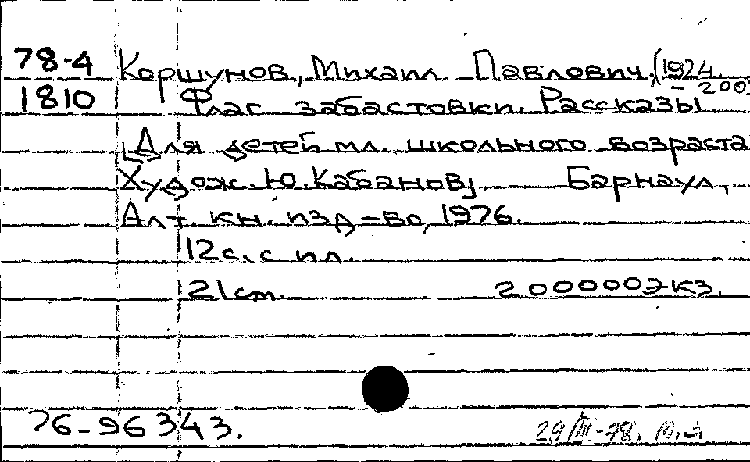 78-4 Коршунов, Михаил Павлович. (1924
- 200
1810 Флаг забастовки. Рассказы
[Для детей мл. школьного возраста
Худож. Ю. Кабанов] Барнаул,
Алт. кн. изд-во, 1976.
12 с. с ил.
21 cm. 200000 экз.
76-96343.
29/III-78.